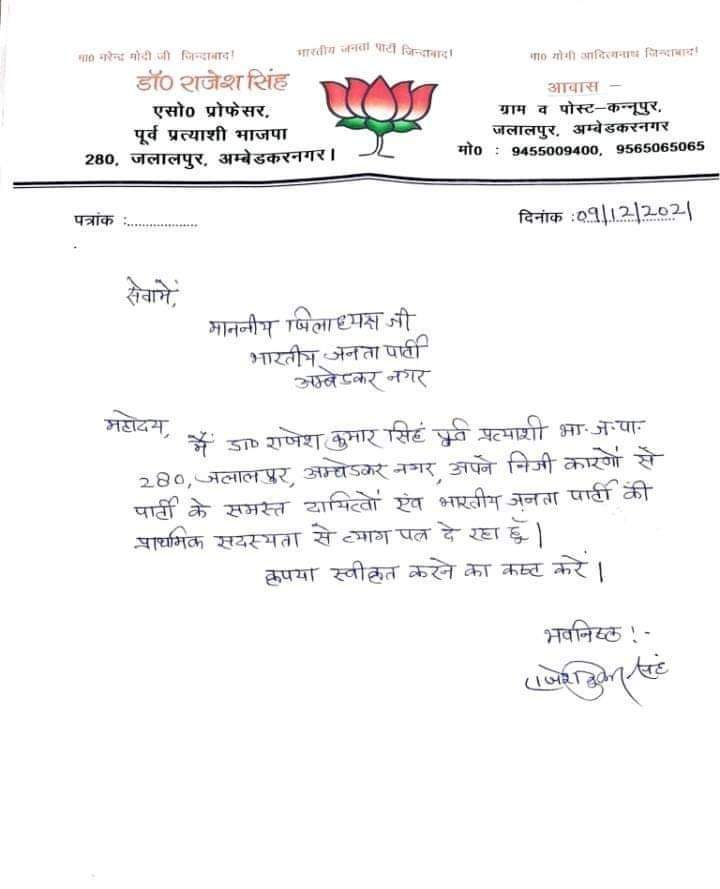 मा0 नरेन्द्र मोदी जी जिन्दाबाद!
भारतीय जनता पार्टी जिन्दाबाद!
मा0 योगी आदित्यनाथ जिन्दाबाद!
डॉ0 राजेश सिंह
एसो0 प्रोफेसर,
पूर्व प्रत्याशी भाजपा
280, जलालपुर, अम्बेडकरनगर।
आवास –
ग्राम व पोस्ट-कन्नूपुर,
जलालपुर, अम्बेडकरनगर
मो0 : 9455009400, 9565065065
पत्रांक :...................
दिनांक :09/12/2021
सेवामें,
माननीय जिलाध्यक्ष जी
भारतीय जनता पार्टी
अम्बेडकर नगर
महोदय,
मैं डा0 राजेश कुमार सिहं पूर्व प्रत्याशी भा·ज·पा·
280, जलालपुर, अम्बेडकर नगर, अपने निजी कारणों से
पार्टी के समस्त दायित्वों एंव भारतीय जनता पार्टी की
प्राथमिक सदस्यता से त्याग पत्र दे रहा हूँ।
कृपया स्वीकृत करने का कष्ट करें।
भवनिष्ठ !-
राजेश कुमार सिहं